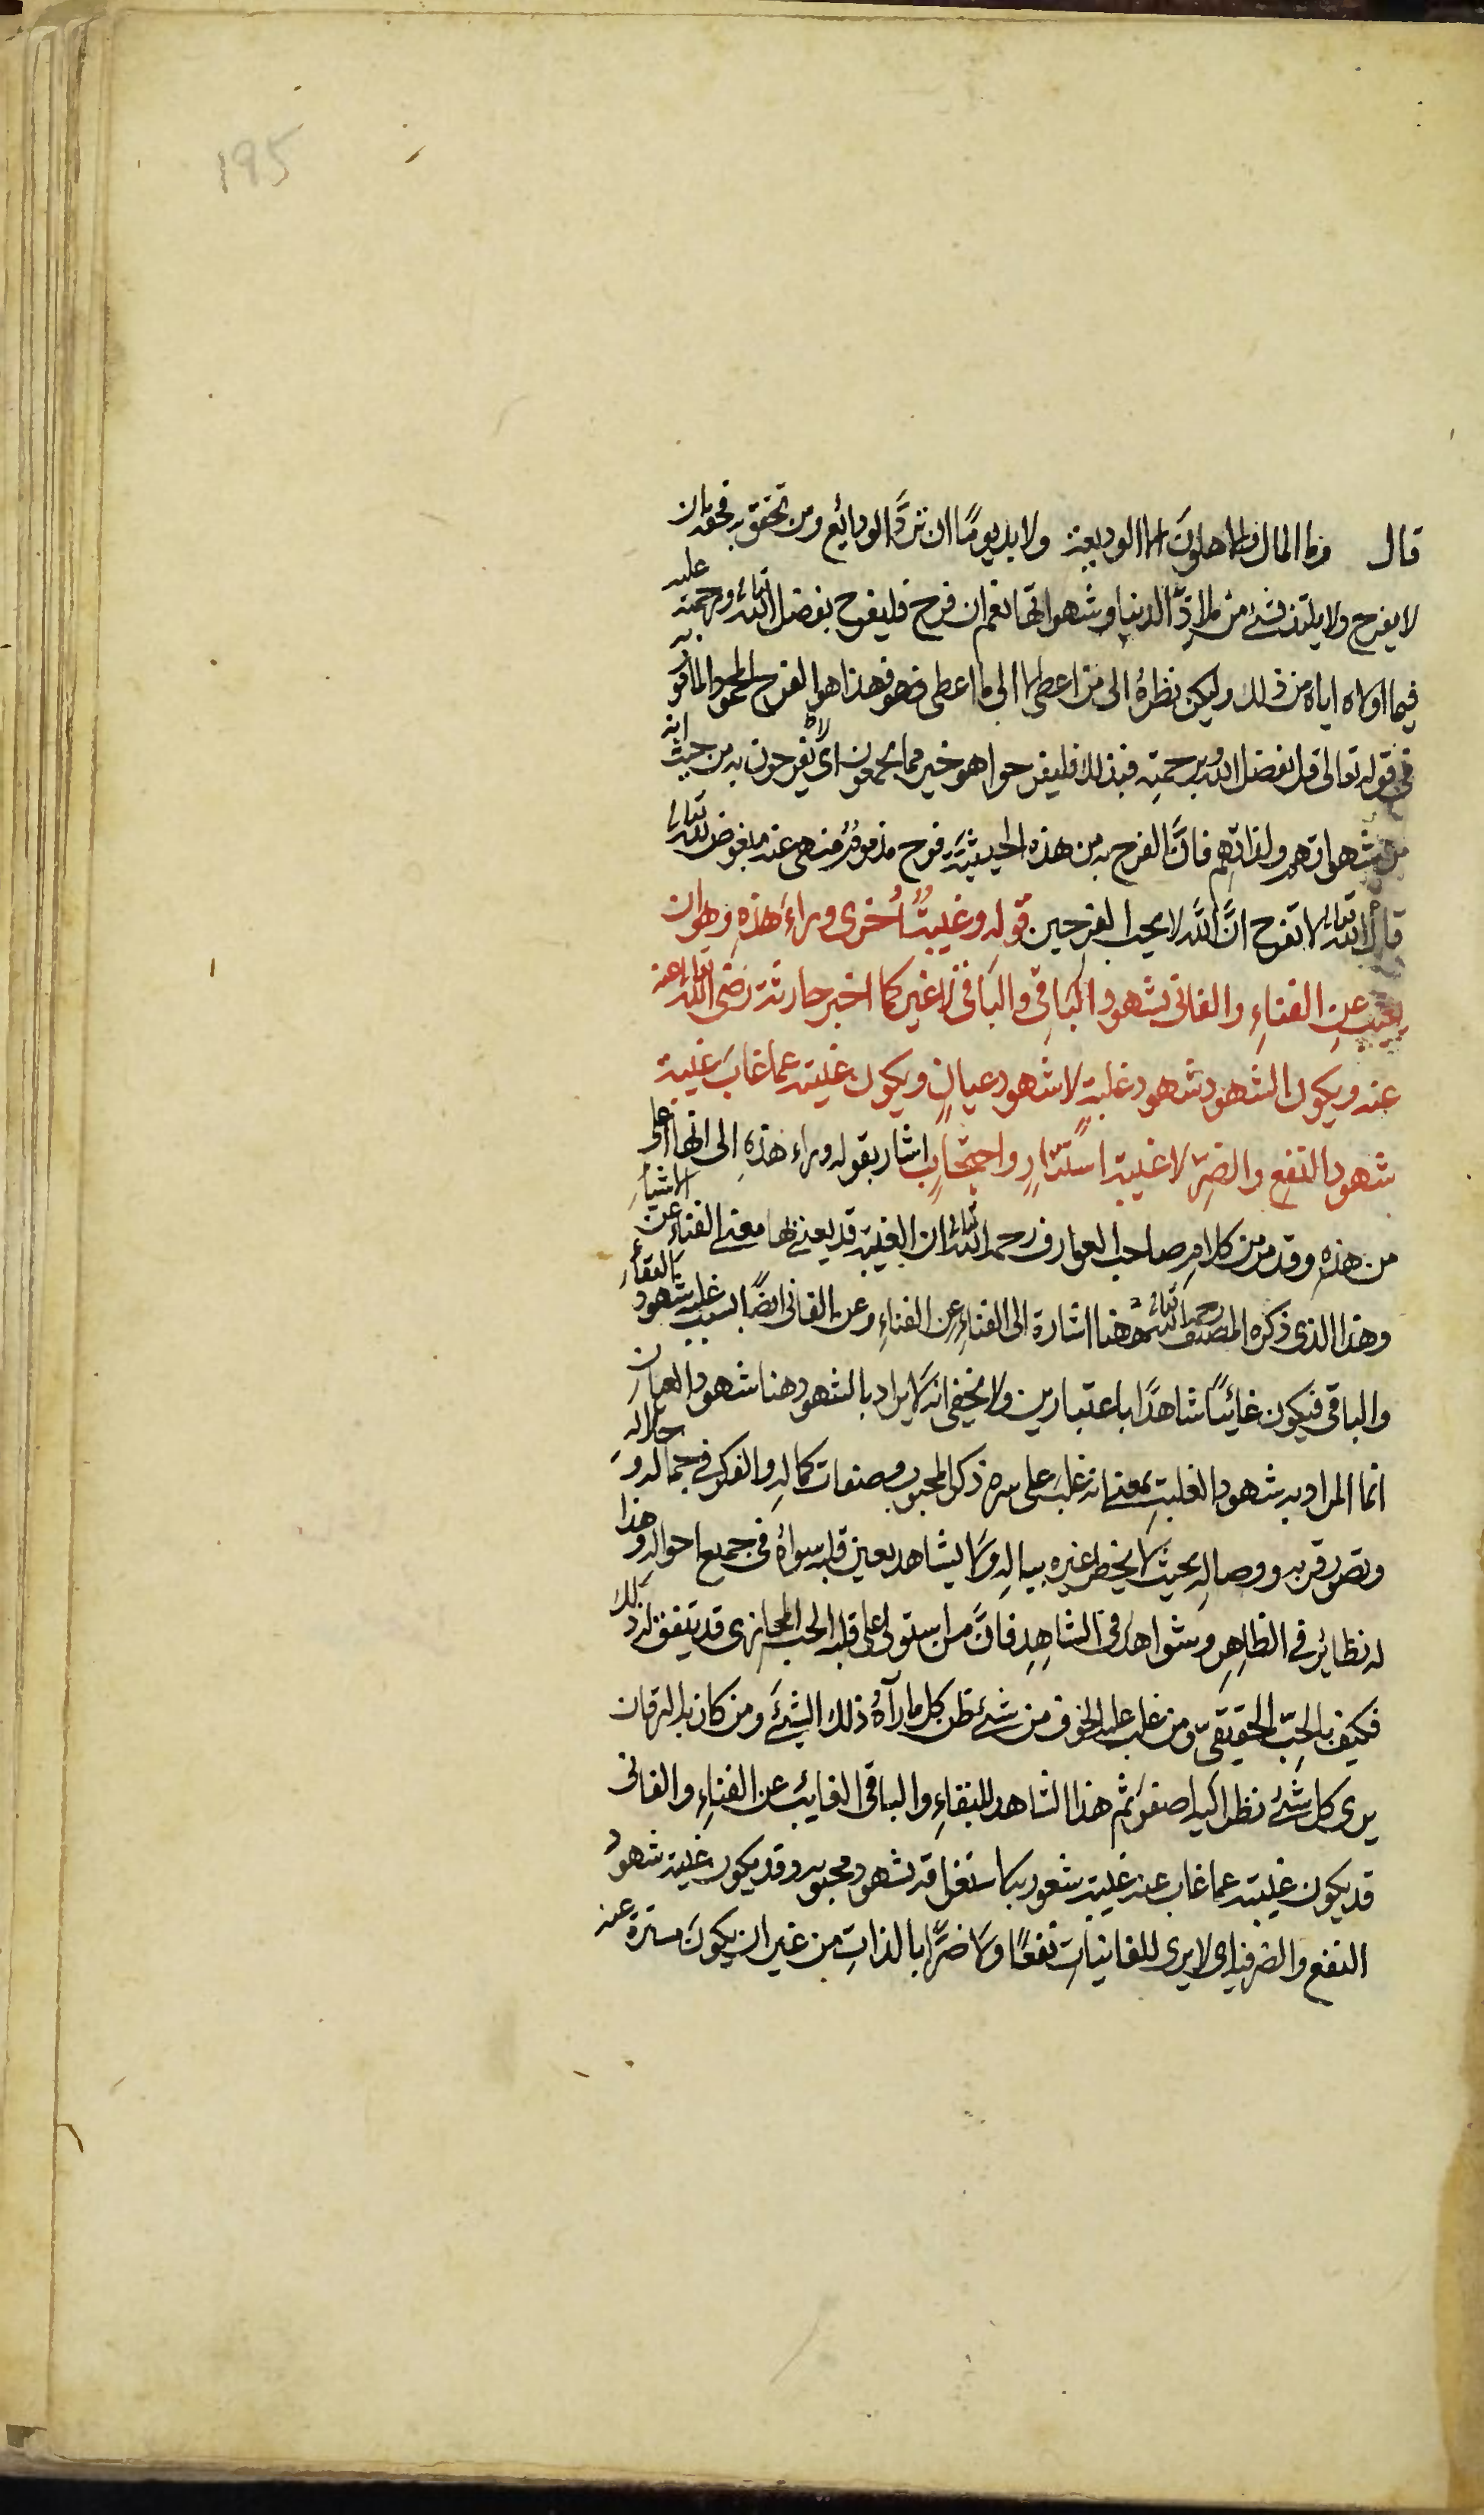 195
قال وما المال والاهلون الا الوديعة ولا بد يومًا ان تردّ الودايع ومن تحقق به فحقه ان
لا يفرح ولا يلتذ بشئ من ملاذّ الدنيا وشهواتها نعم ان فرح فليفرح بفضل الله تعالى ورحمته عليه
فيما اولاه اياه من ذلك وليكن نظره الى من اعطى لا الى ما اعطى فهو فهذا هو الفرح المحمود المأمور به
في قوله تعالى قل بفضل الله وبرحمته فبذلك فليفرحوا هو خير مما يجمعون اى يفرحون به من حيث انه
من شهواتهم ولذاتهم فانّ الفرح به من هذه الحيثية فرح مذموم منهى عنه مبغوض لله تعالى
قال الله تعالى لا تفرح انّ الله لا يحب الفرحين قوله وغيبةٌ اُخرى وراء هذه وهو ان
يغيب عن الفناءِ والفانى بشهود البقاء والباقى لا غير كما اخبر حارثة رضى الله تعالى عنه
عنه ويكون الشهود شهود غلبة لا شهود عيان ويكون غيبته عما غاب غيبة
شهود النفع والضرّ لا غيبة استتارٍ واحتجابٍ اشار بقوله وراء هذه الى انها اعلى
من هذه وقد مر من كلام صاحب العوارف رحمه الله تعالى ان الغيبة قد يعنى بها معنى الفناء عن الاشياء
وهذا الذى ذكره المصنف رحمه الله تعالى ههنا اشارة الى الفناءِ عن الفناءِ وعن الفانى ايضًا بسبب غلبة شهود البقاء
والباقى فيكون غائبًا شاهدًا باعتبارين ولا يخفى انه لا يراد بالشهود هنا شهود العيان
انما المراد به شهود الغلبة بمعنى انه غلب على سره ذكر المحبوب وصفات كماله والفكر في جماله وجلاله
وتصور قربه ووصاله بحيث لا يخطر غيره بباله ولا يشاهد بعين قلبه سواه في جميع احواله وهذا
له نظائر في الظاهر وشواهد في الشاهد فانّ من استولى على قلبه الحب المجازى قد يتفق له ذلك
فكيف بالحبّ الحقيقىّ ومن غلب عليه الخوف من شئ ظن كل ما رآه ذلك الشئ ومن كان به اليرقان
يرى كل شئ نظر اليه اصفر ثم هذا الشاهد للبقاءِ والباقى الغايب عن الفناءِ والفانى
قد يكون غيبته عما غاب عنه غيبة شعور بها استغراقه بشهود محبوبه وقد يكون غيبة شهود
النفع والضر فيه اى لا يرى للفانيات نفعًا ولا ضرًّا بالذات من غير ان يكون مستترة عنه